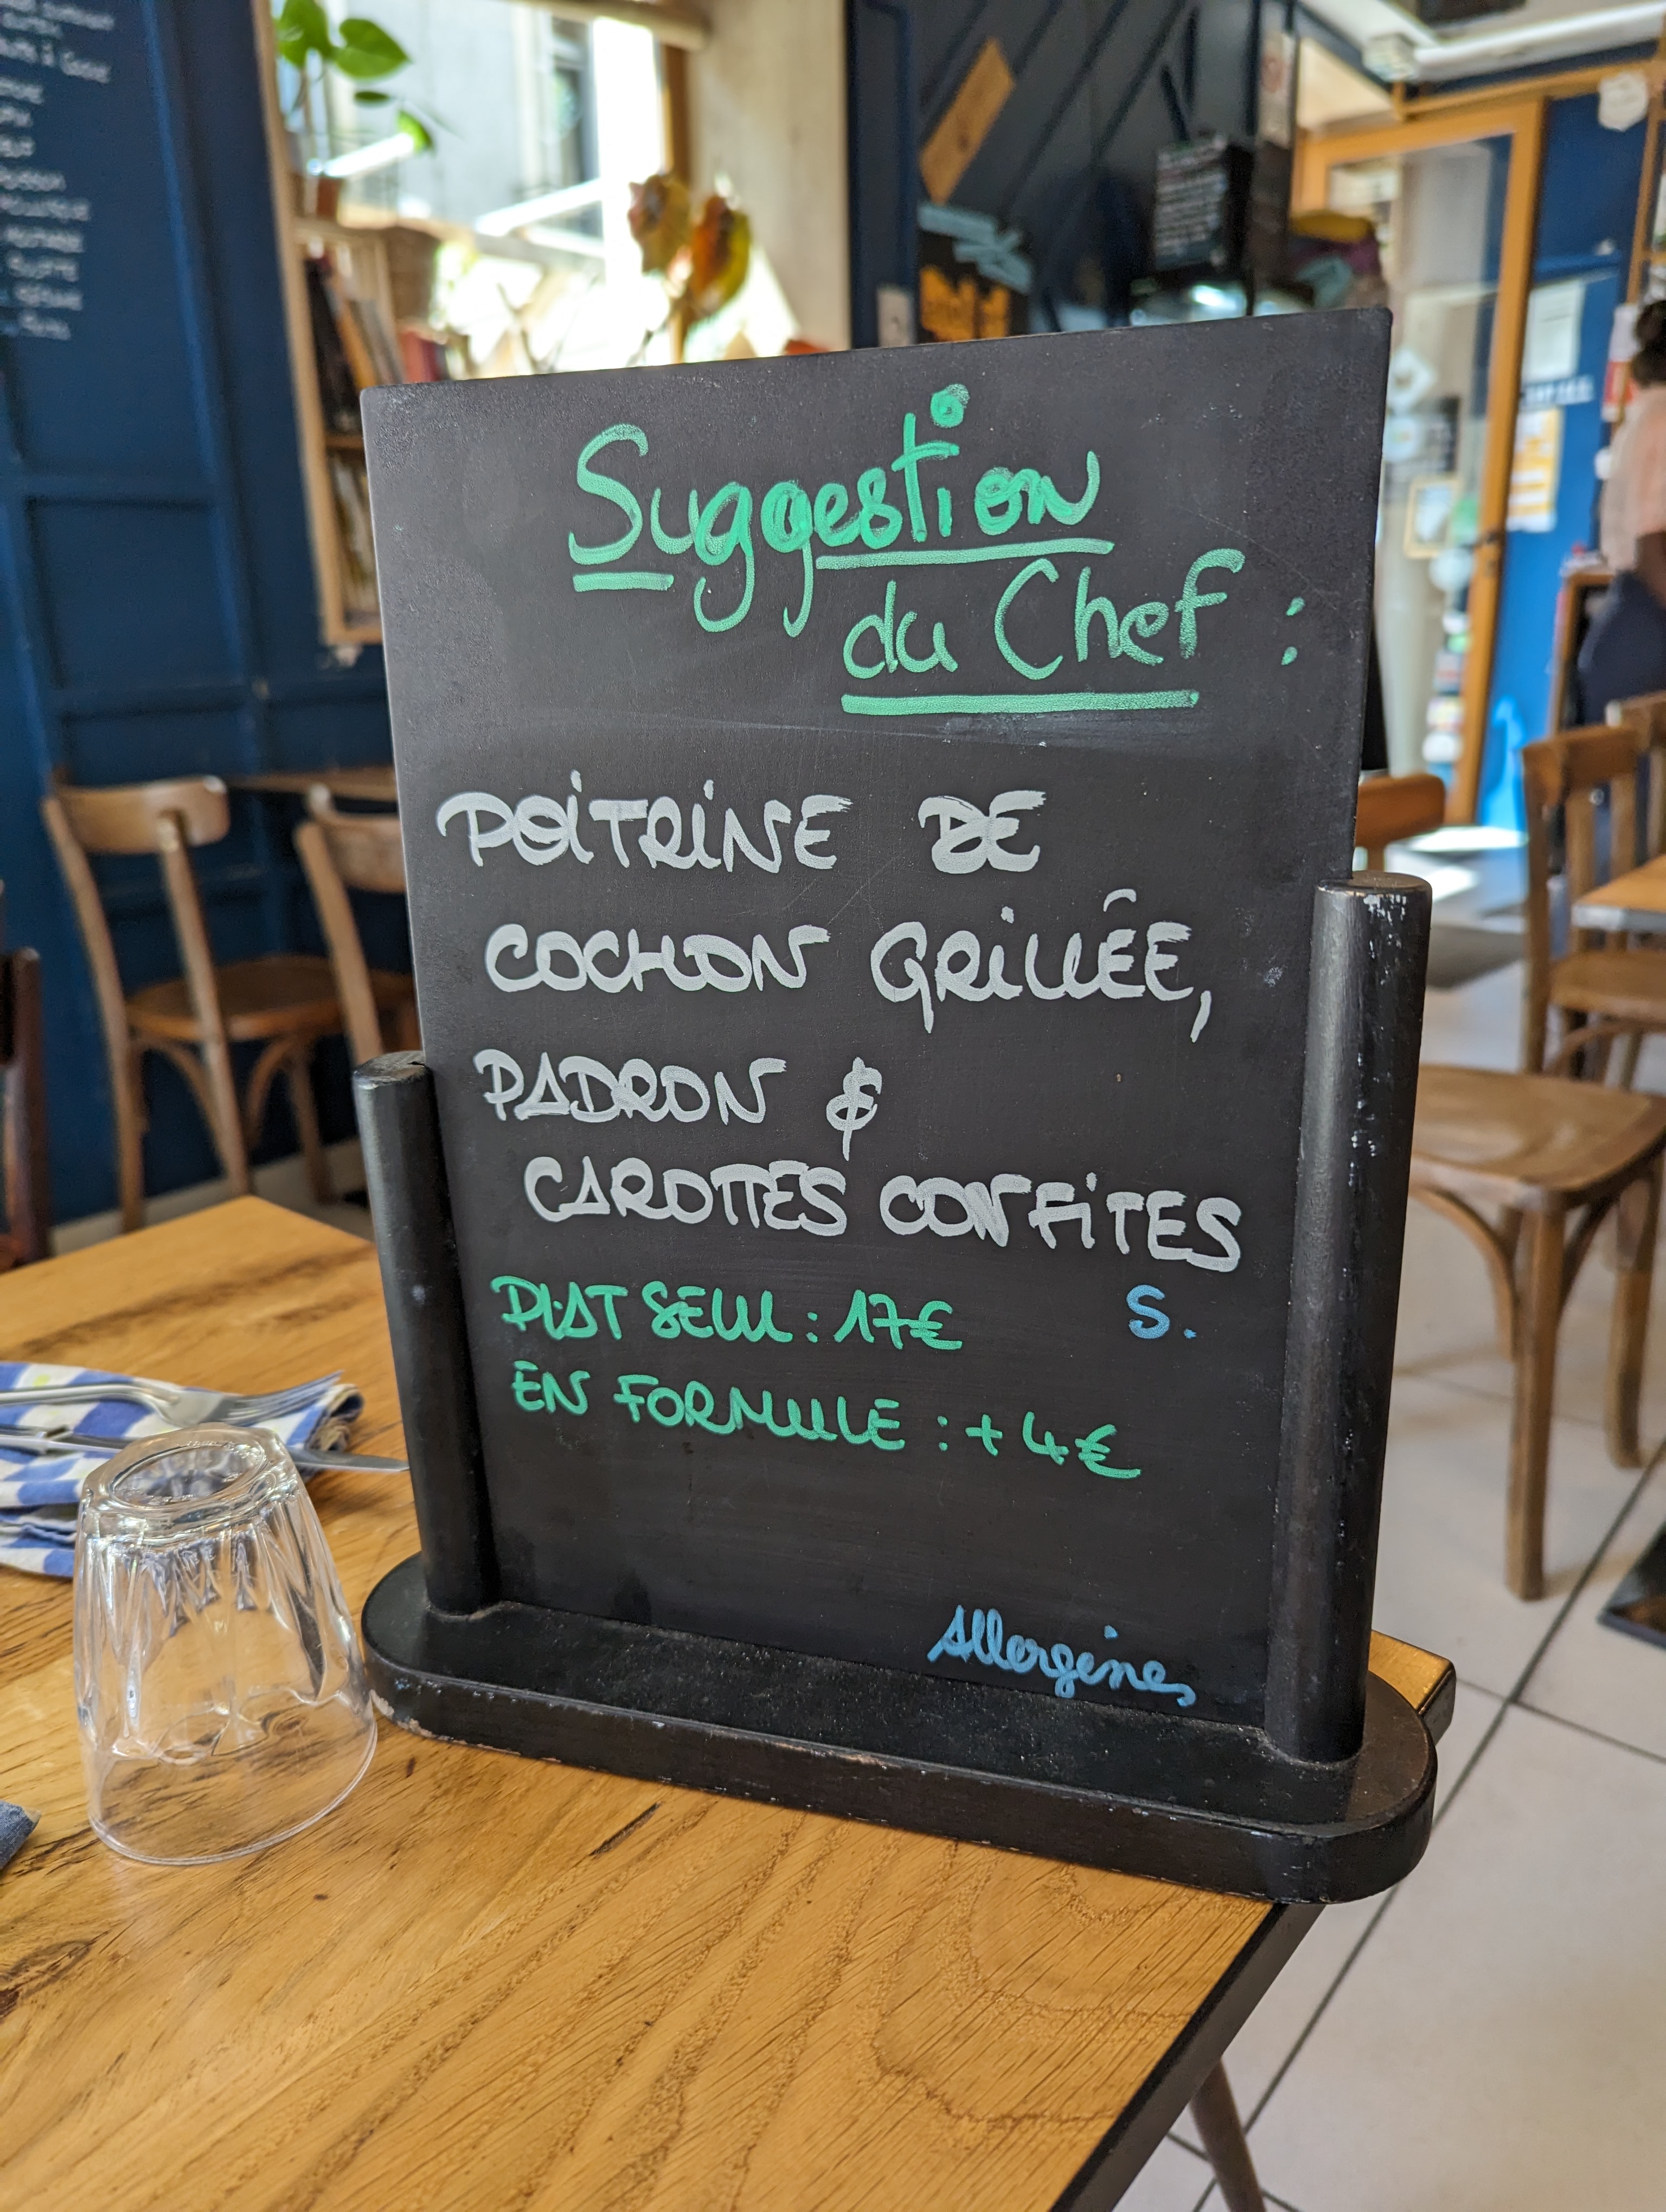 Suggestion
du Chef :
POITRINE DE
COCHON GRILLÉE,
PADRON &
CAROTTES CONFITES
PLAT SEUL : 17€
S.
EN FORMULE : +4€
Allergènes